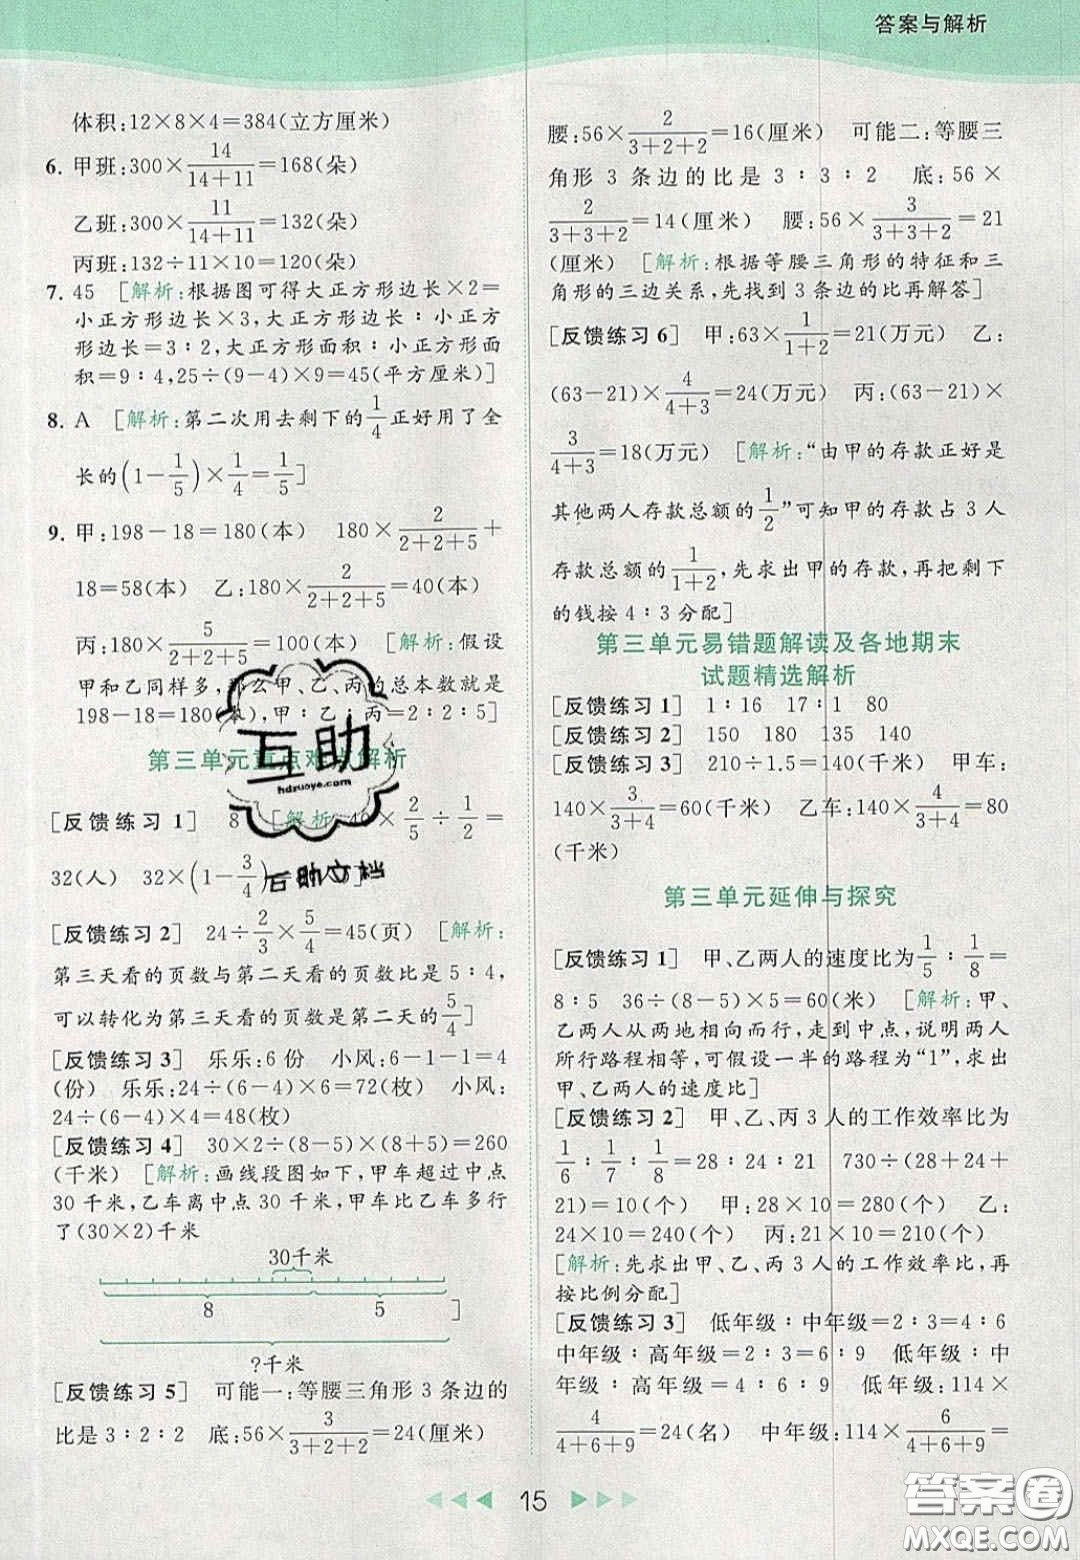 答案与解析
体积:12×8×4=384(立方厘米)
6. 甲班:300×14/(14+11)=168(朵)
乙班:300×11/(14+11)=132(朵)
丙班:132÷11×10=120(朵)
7. 45 [解析:根据图可得大正方形边长×2=
小正方形边长×3,大正方形边长∶小正方
形边长=3∶2,大正方形面积∶小正方形
面积=9∶4,25÷(9-4)×9=45(平方厘米)]
8. A [解析:第二次用去剩下的1/4正好用了全
长的(1-1/5)×1/4=1/5]
9. 甲:198-18=180(本) 180×2/(2+2+5)+
18=58(本) 乙:180×2/(2+2+5)=40(本)
丙:180×5/(2+2+5)=100(本) [解析:假设
甲和乙同样多,那么甲、乙、丙的总本数就是
198-18=180(本),甲∶乙∶丙=2∶2∶5]
第三单元重点难点解析
[反馈练习 1] 8 [解析:40×2/5÷1/2=
32(人) 32×(1-3/4)
[反馈练习 2] 24÷2/3×5/4=45(页) [解析:
第三天看的页数与第二天看的页数比是 5∶4,
可以转化为第三天看的页数是第二天的5/4]
[反馈练习 3] 乐乐:6 份 小风:6-1-1=4
(份) 乐乐:24÷(6-4)×6=72(枚) 小风:
24÷(6-4)×4=48(枚)
[反馈练习 4] 30×2÷(8-5)×(8+5)=260
(千米) [解析:画线段图如下,甲车超过中点
30 千米,乙车离中点 30 千米,甲车比乙车多行
了(30×2)千米
30千米
8 5 ]
?千米
[反馈练习 5] 可能一:等腰三角形 3 条边的
比是 3∶2∶2 底:56×3/(3+2+2)=24(厘米)
腰:56×2/(3+2+2)=16(厘米) 可能二:等腰三
角形 3 条边的比是 3∶3∶2 底:56×
2/(3+3+2)=14(厘米) 腰:56×3/(3+3+2)=21
(厘米) [解析:根据等腰三角形的特征和三
角形的三边关系,先找到 3 条边的比再解答]
[反馈练习 6] 甲:63×1/(1+2)=21(万元) 乙:
(63-21)×4/(4+3)=24(万元) 丙:(63-21)×
3/(4+3)=18(万元) [解析:“由甲的存款正好是
其他两人存款总额的1/2”可知甲的存款占 3 人
存款总额的1/(1+2),先求出甲的存款,再把剩下
的钱按 4∶3 分配]
第三单元易错题解读及各地期末
试题精选解析
[反馈练习 1] 1∶16 17∶1 80
[反馈练习 2] 150 180 135 140
[反馈练习 3] 210÷1.5=140(千米) 甲车:
140×3/(3+4)=60(千米) 乙车:140×4/(3+4)=80
(千米)
第三单元延伸与探究
[反馈练习 1] 甲、乙两人的速度比为1/5∶1/8=
8∶5 36÷(8-5)×5=60(米) [解析:甲、
乙两人从两地相向而行,走到中点,说明两人
所行路程相等,可假设一半的路程为“1”,求出
甲、乙两人的速度比]
[反馈练习 2] 甲、乙、丙 3 人的工作效率比为
1/6∶1/7∶1/8=28∶24∶21 730÷(28+24+
21)=10(个) 甲:28×10=280(个) 乙:
24×10=240(个) 丙:21×10=210(个)
[解析:先求出甲、乙、丙 3 人的工作效率比,再
按比例分配]
[反馈练习 3] 低年级∶中年级=2∶3=4∶6
中年级∶高年级=2∶3=6∶9 低年级∶中
年级∶高年级=4∶6∶9 低年级:114×
4/(4+6+9)=24(名) 中年级:114×6/(4+6+9)=
15
互助
hdzuoye.com
互助文档
答案圈
MXQE.COM